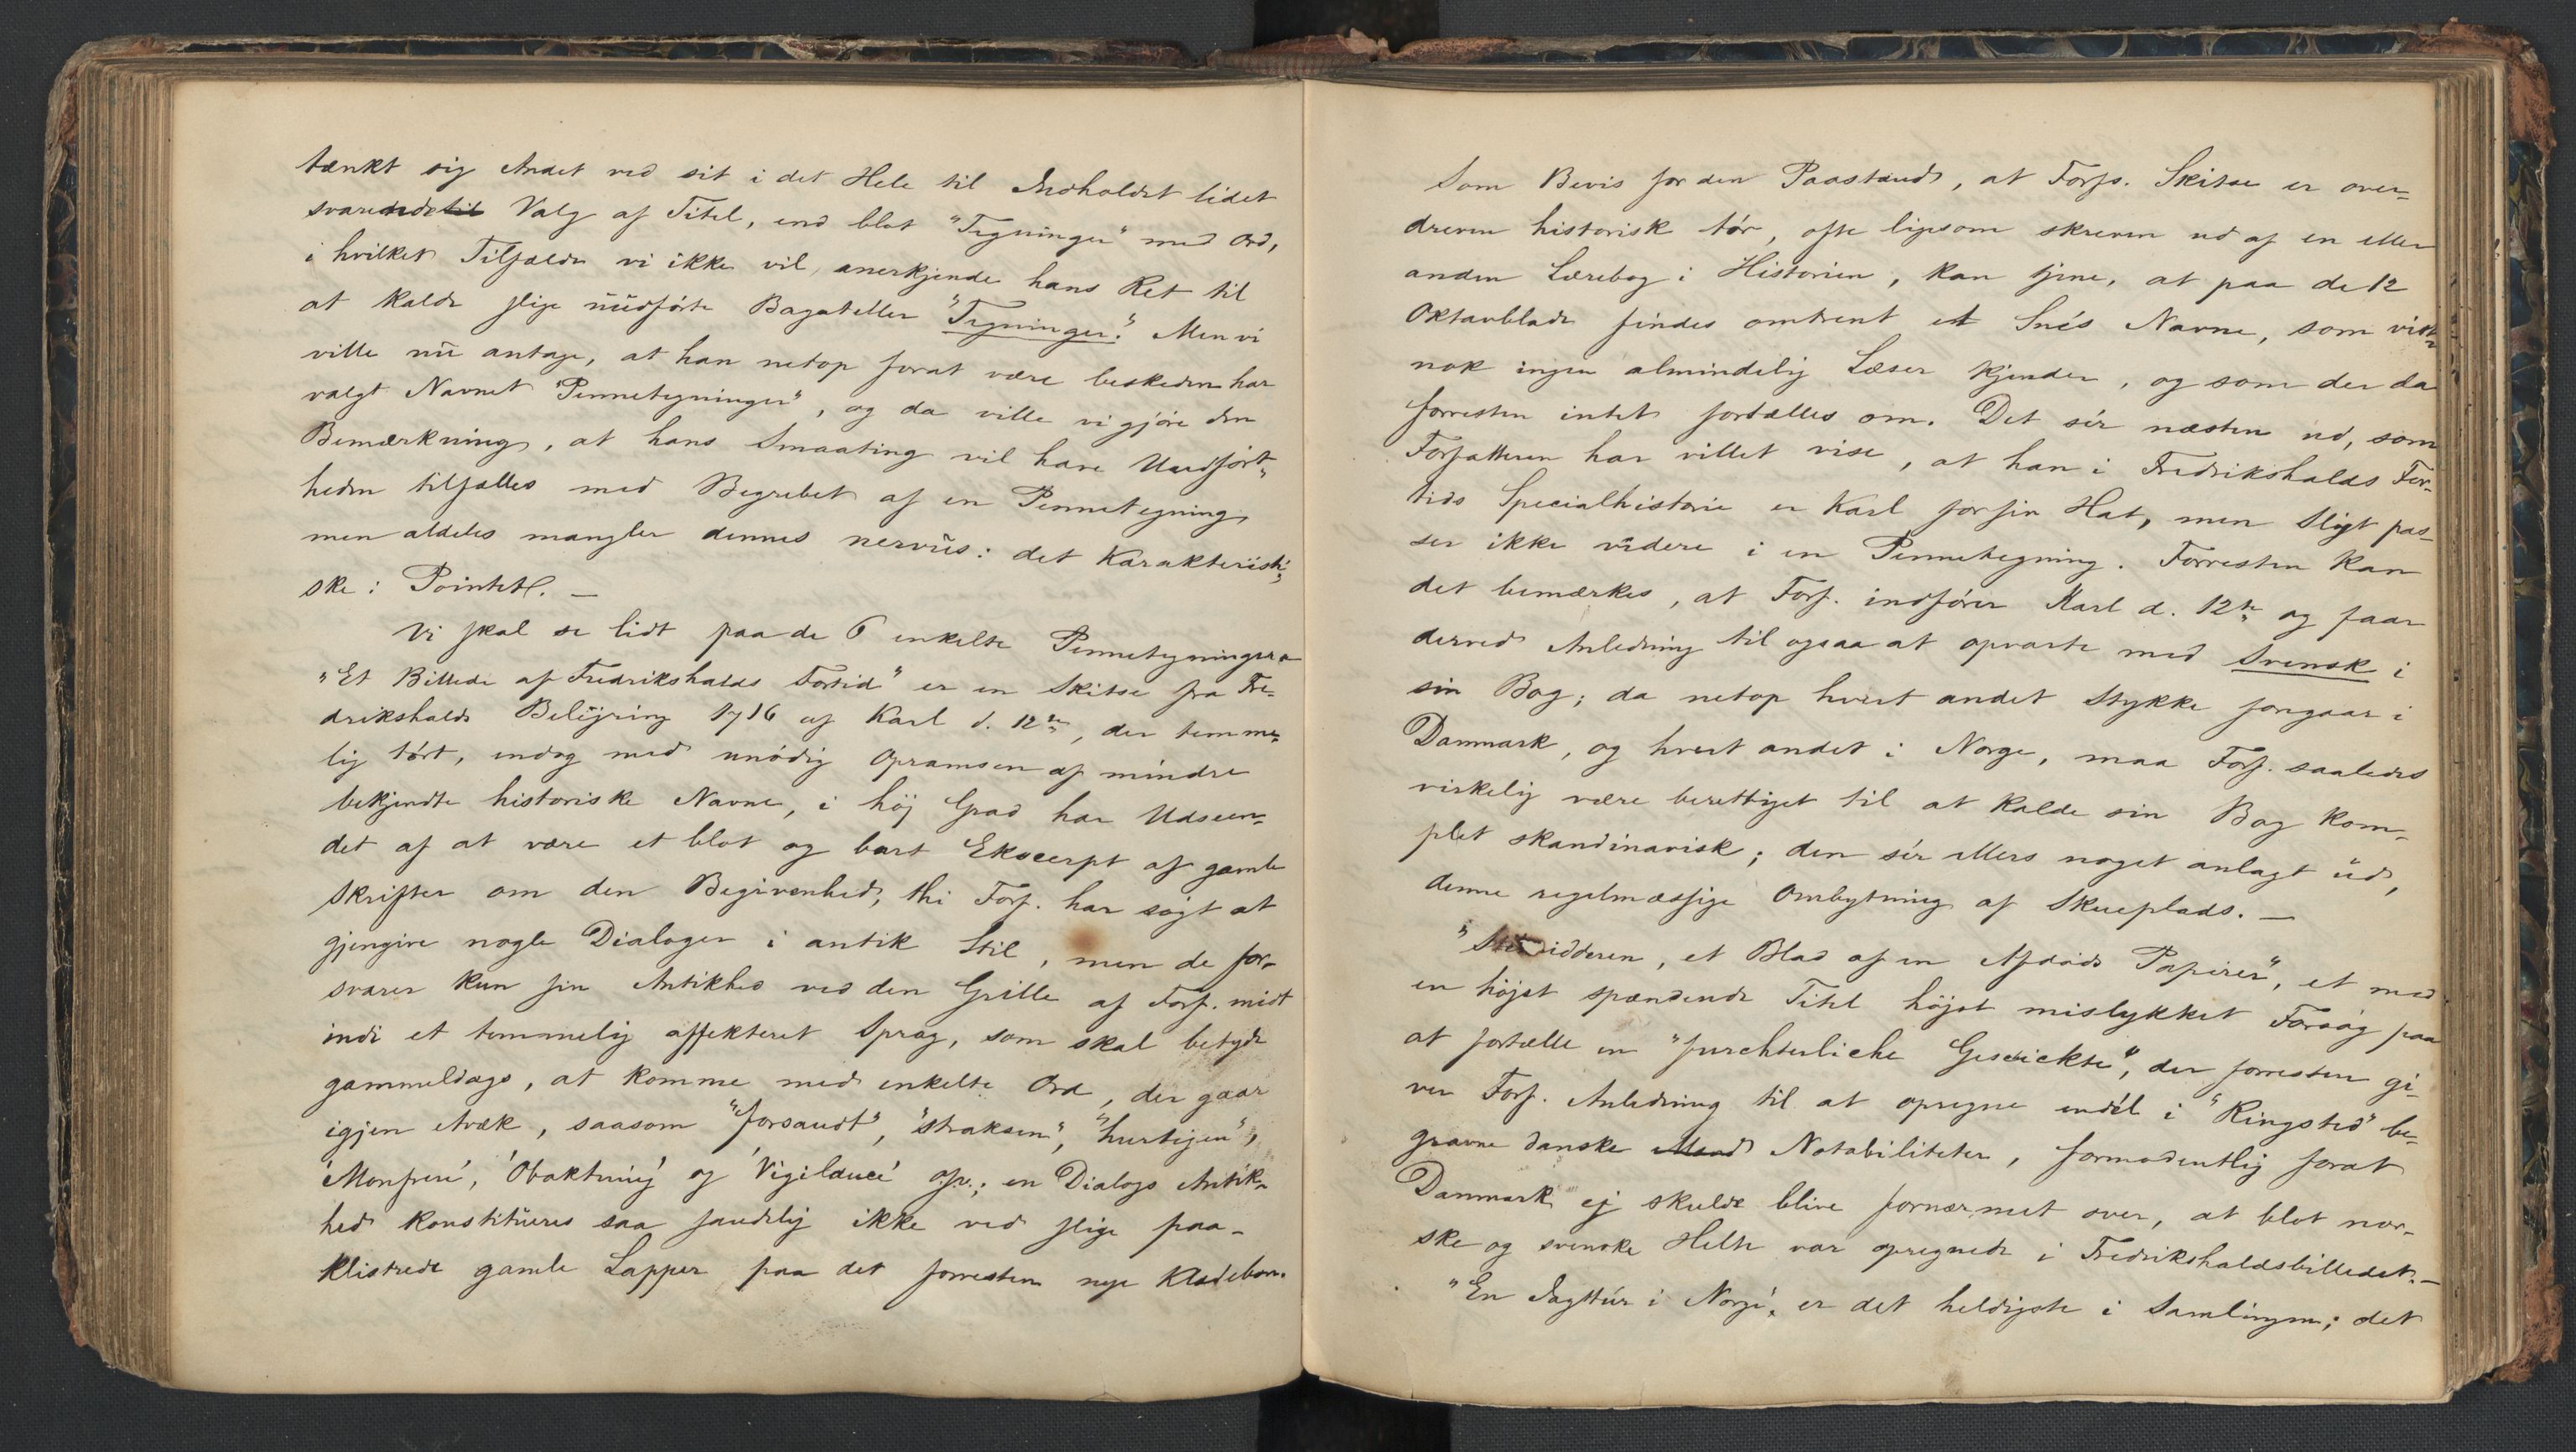 tænkt sig Andet ved sit i det Hele til Indholdet lidet
svarende til Valg af Titel, end blot "Tegninger" med Ord,
i hvilket Tilfælde vi ikke vil anerkjende hans Ret til
at kalde slige uudførte Bagateller "Tegninger". Men vi
ville nu antage, at han netop forat være beskeden har
valgt Navnet "Pennetegninger", og da ville vi gjøre den
Bemærkning, at hans Smaating vil have Uudført-
heden tilfælles med Begrebet af en Pennetegning,
men aldeles mangler dennes nervus: det Karakteristi-
ske: Pointet. —
Vi skal se lidt paa de 6 enkelte Pennetegninger.
"Et Billede af Fredrikshalds Fortid" er en Skitse fra Fre-
drikshalds Belejring 1716 af Karl d. 12te, der temme-
lig tørt, endog med unødig Opramsen af mindre
bekjendte historiske Navne, i høj Grad har Udseen-
det af at være et blot og bart Ekscerpt af gamle
Skrifter om den Begivenhed, thi Forf. har søgt at
gjengive nogle Dialoger i antik Stil, men de for-
svarer kun sin Antikhed ved den Grille af Forf. midt
inde i et temmelig affekteret Sprog, som skal betyde
gammeldags, at komme med enkelte Ord, der gaar
igjen , saasom "forsandt", "straksen", "hurtigen",
'Monfrere', 'Obaktning' og 'Vigilance' ofv.; en Dialogs Antik-
hed konstitueres saa sandelig ikke ved slige paa-
klistrede gamle Lapper paa det forresten nye Klædebon.
Som Bevis for den Paastand, at Forfs. Skitse er over-
dreven historisk tør, ofte ligesom skreven ud af en eller
anden Lærebog i Historien, kan tjene, at paa de 12
Oktavblade findes omtrent et Snés Navne, som vist-
nok ingen almindelig Læser kjender, og som der da
forresten intet fortælles om. Det sér næsten ud, som
Forfatteren har villet vise, at han i Fredrikshalds For-
tids Specialhistorie er Karl for sin Hat, men Sligt pas-
ser ikke videre i en Pennetegning. Forresten kan
det bemærkes, at Forf. indfører Karl d. 12te og faar
derved Anledning til ogsaa at opvarte med Svensk i
sin Bog; da netop hvert andet Stykke foregaar i
Danmark, og hvert andet i Norge, maa Forf. saaledes
virkelig være berettiget til at kalde sin Bog kom-
plet skandinavisk; den sér ellers noget anlagt ud,
denne regelmæssige Ombytning af Skueplads. —
" et Blad af en Afdøds Papirer", et med
en højst spændende Titel højst mislykket Forsøg paa
at fortælle en "furchterliche Geschickte", der forresten gi-
ver Forf. Anledning til at opregne endél i "Ringsted" be-
gravne danske Mænd Notabiliteter, formodentlig forat
Danmark ej skulde blive fornærmet over, at blot nor-
ske og svenske Helte var opregnede i Fredrikshaldsbilledet. —
"En Jagttúr i Norge", er det heldigste i Samlingen; det